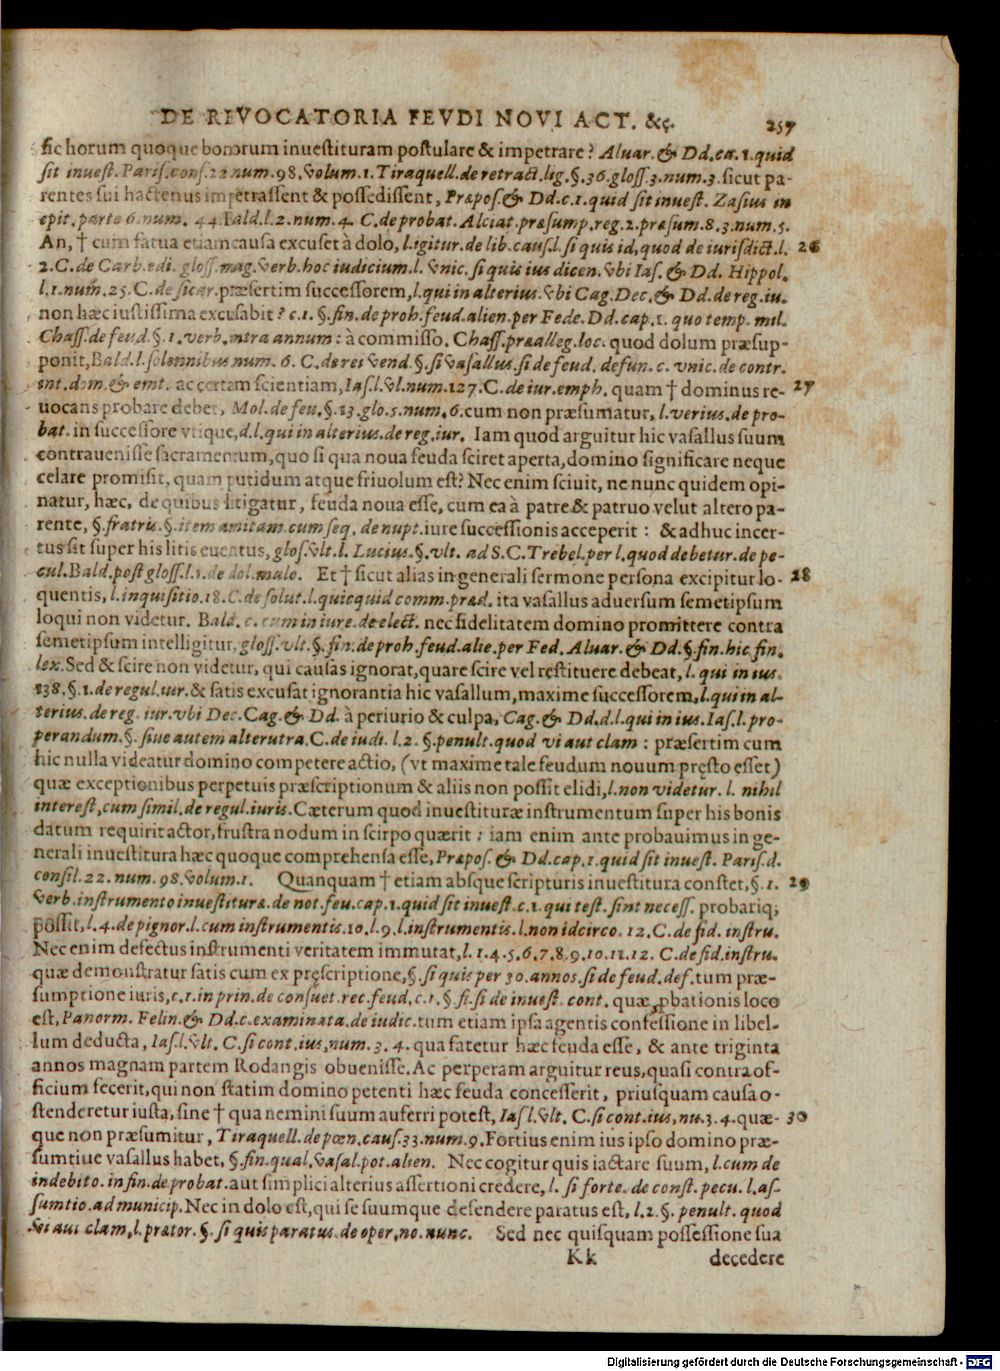 DE REVOCATORIA FEVDI NOVI ACT. &ç. 257
sic horum quoque bonorum inuestituram postulare & impetrare? Aluar. & Dd. ca. 1. quid
sit inuest. Paris. cons. 22 num. 98. Volum. 1. Tiraquell. de retract. lig. §. 36. gloss. 3. num. 3. sicut pa-
rentes sui hactenus impetrassent & possedissent, Præpos. & Dd. c. 1. quid sit inuest. Zasius in
epit. parte 6. num. 44. Bald. l. 2. num. 4. C. de probat. Alciat. præsump. reg. 2. præsum. 8. 3. num. 5.
An, † cum fatua etiam causa excuset à dolo, l. igitur. de lib. caus. l. si quis id, quod de iurisdict. l. 26
2. C. de Carb. edi. gloss. mag. Verb. hoc iudicium. l. Vnic. si quis ius dicen. Vbi Ias. & Dd. Hippol.
l. 1. num. 25. C. de sicar. præsertim successorem, l. qui in alterius. Vbi Cag. Dec. & Dd. de reg. iu.
non hæc iustissima excusabit? c. 1. §. fin. de proh. feud. alien. per Fede. Dd. cap. 1. quo temp. mil.
Chass. de feud. §. 1. verb. intra annum: à commisso. Chass. præalleg. loc. quod dolum præsup-
ponit, Bald. l. solennibus num. 6. C. de rei Vend. §. si Vasallus. si de feud. defun. c. vnic. de contr.
int. dom. & emt. ac certam scientiam, Ias. l. Vl. num. 127. C. de iur. emph. quam † dominus re- 27
uocans probare debet, Mol. de feu. §. 23. glo. 5. num. 6. cum non præsumatur, l. verius. de pro-
bat. in successore vtique, d. l. qui in alterius. de reg. iur. Iam quod arguitur hic vasallus suum
contrauenisse sacramentum, quo si qua noua feuda sciret aperta, domino significare neque
celare promisit, quam putidum atque friuolum est? Nec enim sciuit, ne nunc quidem opi-
natur, hæc, de quibus litigatur, feuda noua esse, cum ea à patre & patruo velut altero pa-
rente, §. fratris. §. item amitam. cum seq. de nupt. iure successionis acceperit: & adhuc incer-
tus sit super his litis euentus, glos. Vlt. l. Lucius. §. vlt. ad S. C. Trebel. per l. quod debetur. de pe-
cul. Bald. post gloss. l. 1. de dol. malo. Et † sicut alias in generali sermone persona excipitur lo- 28
quentis, l. inquisitio. 18. C. de solut. l. quicquid comm. præd. ita vasallus aduersum semetipsum
loqui non videtur. Bald. c. cum in iure. de elect. nec fidelitatem domino promittere contra
semetipsum intelligitur, gloss. vlt. §. fin. de proh. feud. alie. per Fed. Aluar. & Dd. §. fin. hic fin.
lex. Sed & scire non videtur, qui causas ignorat, quare scire vel restituere debeat, l. qui in ius.
138. §. 1. de regul. iur. & satis excusat ignorantia hic vasallum, maxime successorem, l. qui in al-
terius. de reg. iur. vbi Dec. Cag. & Dd. à periurio & culpa, Cag. & Dd. d. l. qui in ius. Ias. l. pro-
perandum. §. siue autem alterutra. C. de iudi. l. 2. §. penult. quod vi aut clam: præsertim cum
hic nulla videatur domino competere actio, (vt maxime tale feudum nouum pręsto esset)
quæ exceptionibus perpetuis præscriptionum & aliis non possit elidi, l. non videtur. l. nihil
interest, cum simil. de regul. iuris. Cæterum quod inuestituræ instrumentum super his bonis
datum requirit actor, frustra nodum in scirpo quærit: iam enim ante probauimus in ge-
nerali inuestitura hæc quoque comprehensa esse, Præpos. & Dd. cap. 1. quid sit inuest. Paris. d.
consil. 22. num. 98. Volum. 1. Quanquam † etiam absque scripturis inuestitura constet, §. 1. 29
Verb. instrumento inuestituræ. de not. feu. cap. 1. quid sit inuest. c. 1. qui test. sint necess. probariq;
possit, l. 4. de pignor. l. cum instrumentis. 10. l. 9. l. instrumentis. l. non idcirco. 12. C. de fid. instru.
Nec enim defectus instrumenti veritatem immutat, l. 1. 4. 5. 6. 7. 8. 9. 10. 11. 12. C. de fid. instru.
quæ demonstratur satis cum ex pręscriptione, §. si quis per 30. annos. si de feud. def. tum præ-
sumptione iuris, c. 1. in prin. de consuet. rec. feud. c. 1. §. si. si de inuest. cont. quæ ꝓbationis loco
est, Panorm. Felin. & Dd. c. examinata. de iudic. tum etiam ipsa agentis confessione in libel-
lum deducta, Ias. l. Vlt. C. si cont. ius, num. 3. 4. qua fatetur hæc feuda esse, & ante triginta
annos magnam partem Rodangis obuenisse. Ac perperam arguitur reus, quasi contra of-
ficium fecerit, qui non statim domino petenti hæc feuda concesserit, priusquam causa o-
stenderetur iusta, sine † qua nemini suum auferri potest, Ias. l. Vlt. C. si cont. ius, nu. 3. 4. quæ- 30
que non præsumitur, Tiraquell. de pœn. caus. 33. num. 9. Fortius enim ius ipso domino præ-
sumtiue vasallus habet, §. fin. qual. Vasal. pot. alien. Nec cogitur quis iactare suum, l. cum de
indebito. in fin. de probat. aut simplici alterius assertioni credere, l. si forte. de const. pecu. l. as-
sumtio. ad municip. Nec in dolo est, qui se suumque defendere paratus est, l. 2. §. penult. quod
Vi aut clam, l. prætor. §. si quis paratus. de oper. no. nunc. Sed nec quisquam possessione sua
Kk decedere
Digitalisierung gefördert durch die Deutsche Forschungsgemeinschaft - DFG